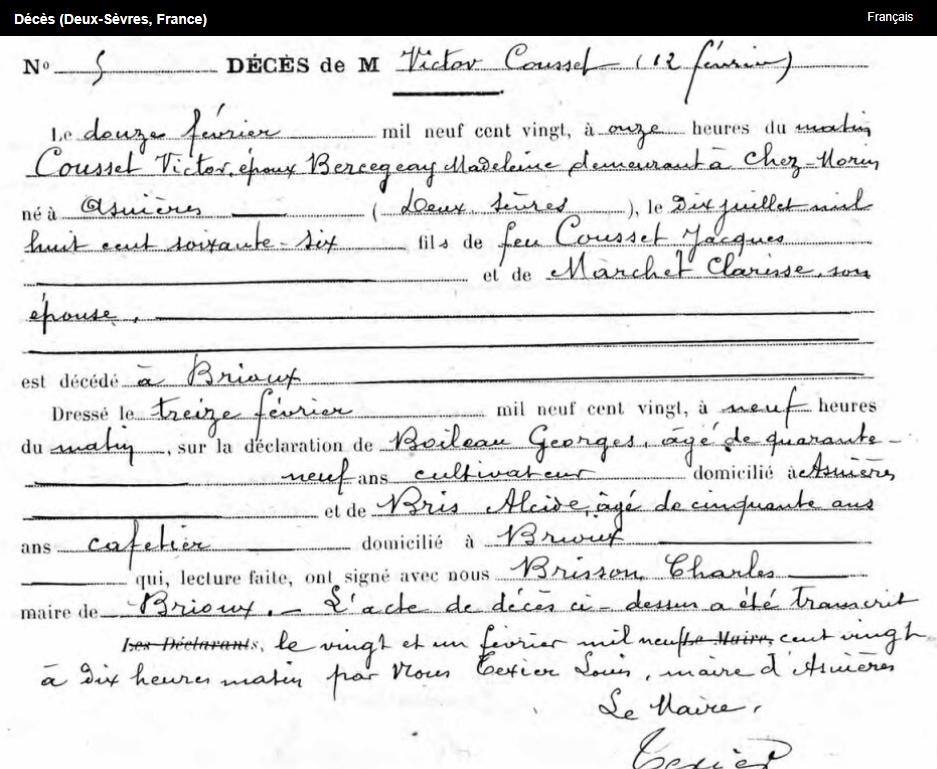 Décès (Deux-Sèvres, France)
Français
Nº 5 DÉCÈS de M Victor Cousset (12 février)
Le douze février mil neuf cent vingt, à onze heures du matin
Cousset Victor, époux Bercegeay Madeleine demeurant à Chez-Morin
né à Asnières (Deux-Sèvres), le Dix juillet mil
huit cent soixante-six fils de feu Cousset Jacques
et de Marchet Clarisse, son
épouse.
est décédé à Brioux
Dressé le treize février mil neuf cent vingt, à neuf heures
du matin, sur la déclaration de Boileau Georges, âgé de quarante-
neuf ans cultivateur domicilié à Asnières
et de Bris Alcide, âgé de cinquante ans
ans cafetier domicilié à Brioux
qui, lecture faite, ont signé avec nous Brisson, Charles
maire de Brioux. — L'acte de décès ci-dessus a été transcrit
Les Déclarants, le vingt et un février mil neuf Le Maire, cent vingt
à dix heures matin par Nous Texier Louis, maire d'Asnières
Le Maire,
Texier